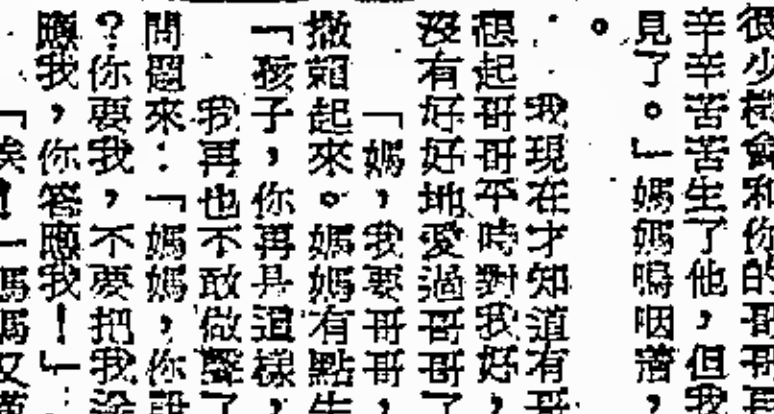 很少機會和你的哥哥見
辛辛苦苦生了他，但我
見了。」媽媽嗚咽着，
。
我現在才知道有哥
想起哥哥平時對我好，
沒有好好地愛過哥哥了
「媽，我要哥哥，
撒賴起來。媽媽有點生
「孩子，你再是這樣，
我再也不敢做聲了
問題來：「媽媽，你說
？你要我，不要把我給
應我，你答應我！」
「唉！」媽媽又